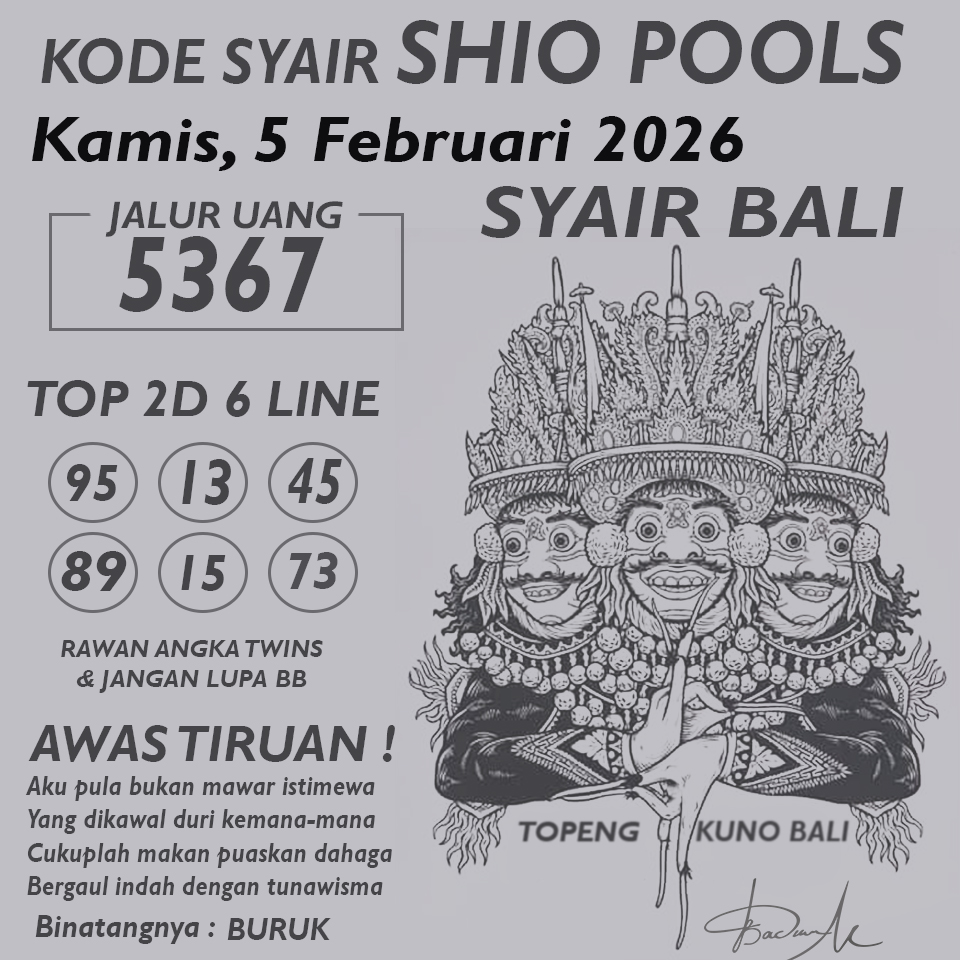 KODE SYAIR SHIO POOLS
Kamis, 5 Februari 2026
SYAIR BALI
JALUR UANG
5367
TOP 2D 6 LINE
95 13 45
89 15 73
RAWAN ANGKA TWINS
& JANGAN LUPA BB
AWAS TIRUAN !
Aku pula bukan mawar istimewa
Yang dikawal duri kemana-mana
Cukuplah makan puaskan dahaga
Bergaul indah dengan tunawisma
Binatangnya : BURUK
TOPENG KUNO BALI